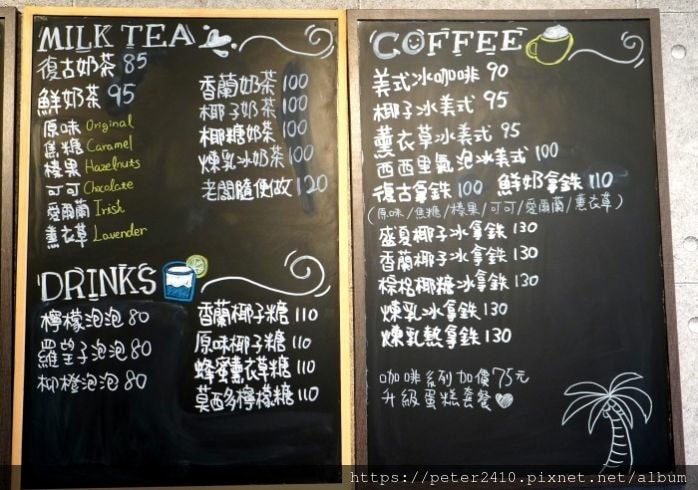 MILK TEA
復古奶茶 85
鮮奶茶 95
原味 Original
焦糖 Caramel
榛果 Hazelnuts
可可 Chocolate
愛爾蘭 Irish
薰衣草 Lavender
香蘭奶茶 100
椰子奶茶 100
椰糖奶茶 100
煉乳冰奶茶 100
老闆隨便做 120
DRINKS
檸檬泡泡 80
羅望子泡泡 80
柳橙泡泡 80
香蘭椰子糖 110
原味椰子糖 110
蜂蜜薰衣草糖 110
莫西多檸檬糖 110
COFFEE
美式冰咖啡 90
椰子冰美式 95
薰衣草冰美式 95
西西里氣泡冰美式 100
復古拿鉄 100 鮮奶拿鉄 110
(原味/焦糖/榛果/可可/愛爾蘭/薰衣草)
盛夏椰子冰拿鉄 130
香蘭椰子冰拿鉄 130
棕梠椰糖冰拿鉄 130
煉乳冰拿鉄 130
煉乳熱拿鉄 130
咖啡系列加價75元
升級蛋糕套餐
https://peter2410.pixnet.net/album